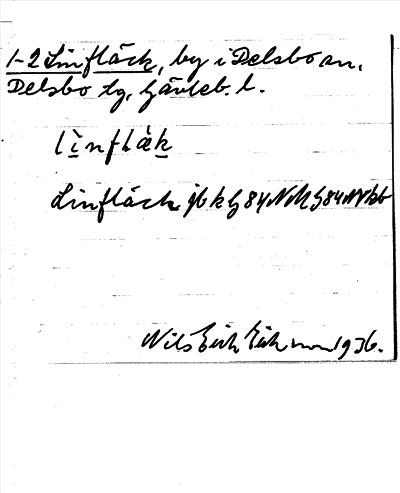 1-2 Linfläck, by i Delsbo sn.
Delsbo tg, Gävleb. l.
lìnflàk
Linfläck jbk G 84 NK G 84 NV kb
Nils Erik Eriksson 1936.